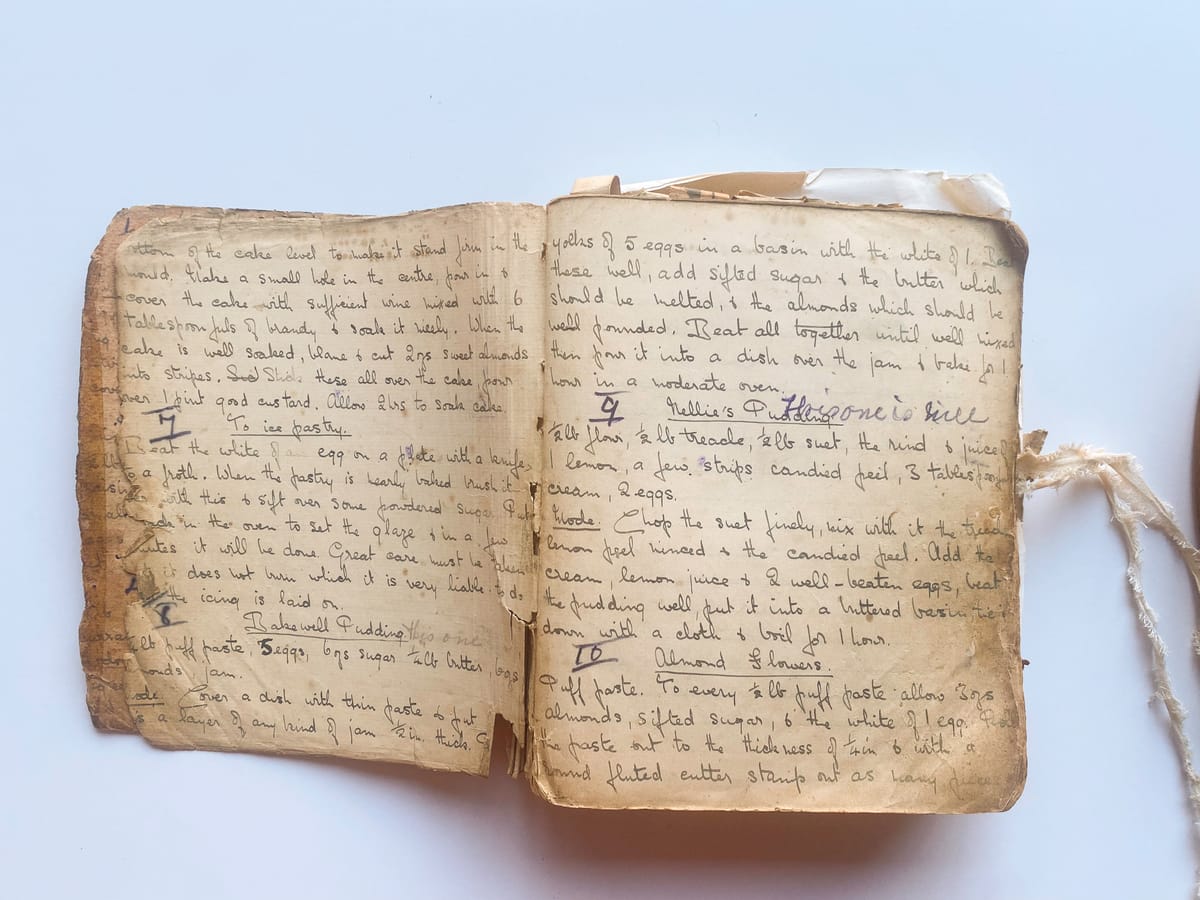 ottom of the cake level to make it stand firm in the
mould. Make a small hole in the centre, pour in &
cover the cake with sufficient wine mixed with 6
tablespoonfuls of brandy & soak it nicely. When the
cake is well soaked, blane & cut 2 ozs sweet almonds
into stripes. Stick these all over the cake, pour
over 1 pint good custard. Allow 2 hrs to soak cake.
7
To ice pastry.
Beat the white of an egg on a plate with a knife
to a froth. When the pastry is nearly baked brush it
with this & sift over some powdered sugar. Put
back in the oven to set the glaze & in a few
nutes it will be done. Great care must be taken
it does not burn which it is very liable to do
the icing is laid on.
8
Bakewell Pudding This one
¼lb puff paste, 5 eggs, 6 ozs sugar ¼lb butter, 1 ozs
monds, jam.
ode. Cover a dish with thin paste & put
is a layer of any kind of jam ½ in. thick.
yolks of 5 eggs in a basin with the white of 1. Beat
these well, add sifted sugar & the butter which
should be melted, & the almonds which should be
well pounded. Beat all together until well mixed
then pour it into a dish over the jam & bake for 1
hour in a moderate oven.
9
Nellie's Pudding This one is nice
½lb flour, ½ lb treacle, ½lb suet, the rind & juice of
1 lemon, a few strips candied peel, 3 tablespoons
cream, 2 eggs.
Mode. Chop the suet finely, mix with it the treacle
lemon peel minced & the candied peel. Add the
cream, lemon juice & 2 well-beaten eggs, beat
the pudding well, put it into a buttered basin tie it
down with a cloth & boil for 1 hour.
10
Almond Flowers.
Puff paste. To every ½lb puff paste allow 3 ozs
almonds, sifted sugar, & the white of 1 egg. Roll
the paste out to the thickness of ¼ in & with a
round fluted cutter stamp out as many pieces